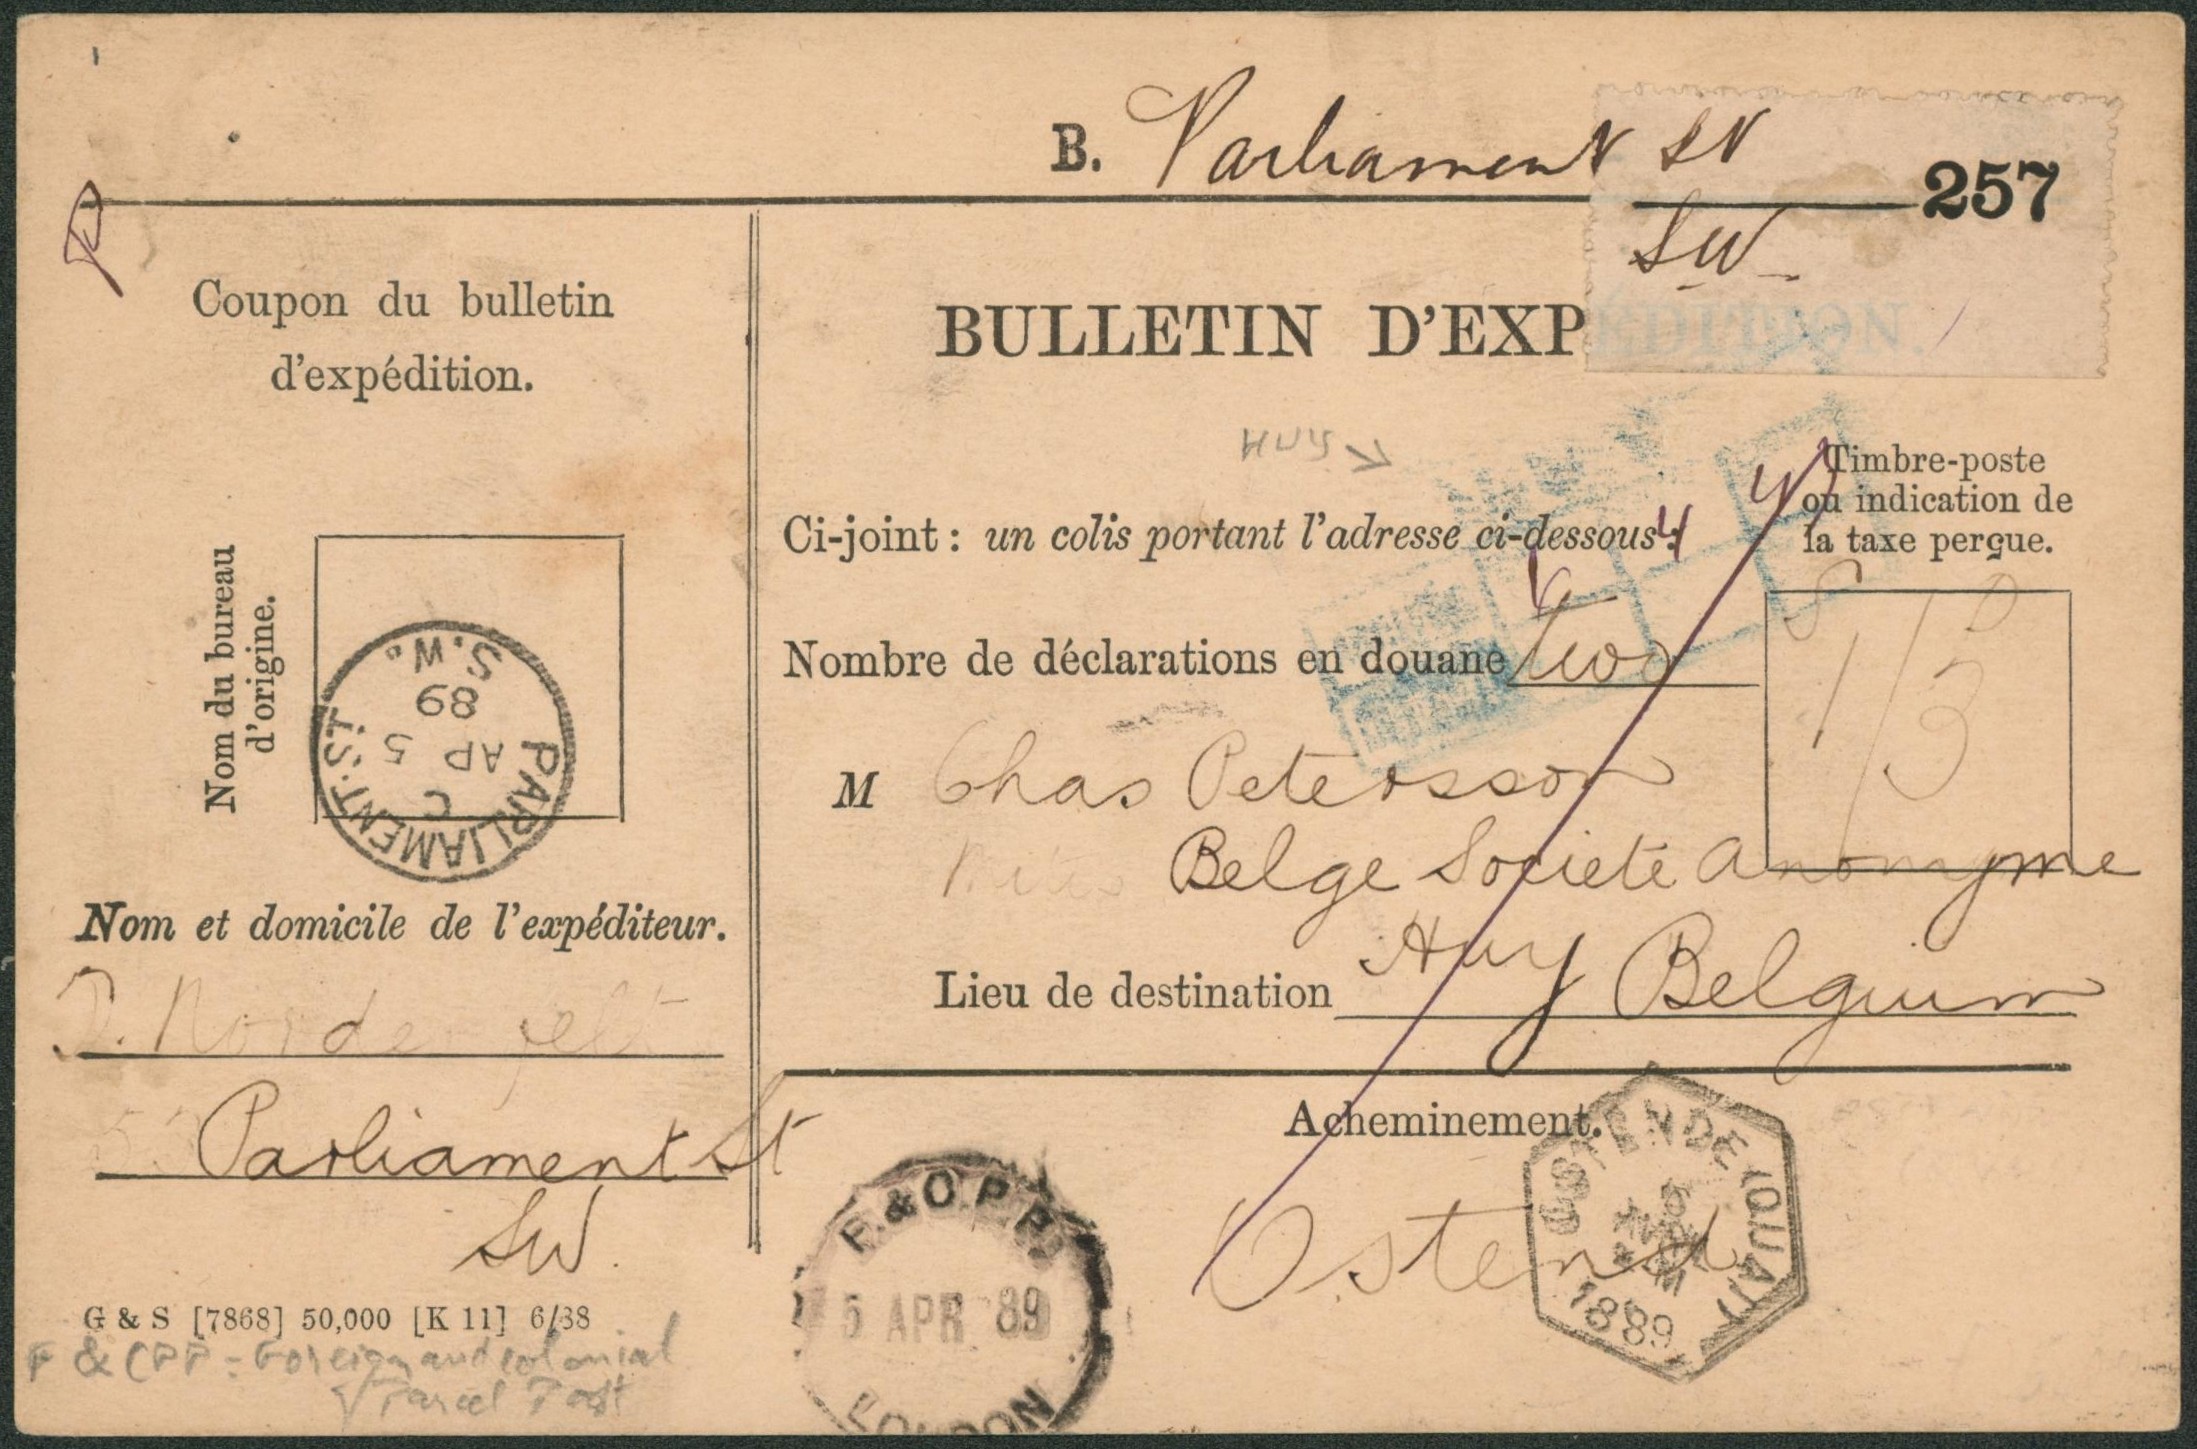 B. Parliament St 257
SW
Coupon du bulletin
d'expédition.
BULLETIN D'EXPÉDITION.
HUY
Timbre-poste
ou indication de
la taxe perçue.
Ci-joint : un colis portant l'adresse ci-dessous :
Nom du bureau
d'origine.
S.W.
89
AP 5
C
PARLIAMENT.ST
Nombre de déclarations en douane two
S D
1/3
M Chas Petersson
Belge Societé anonyme
Nom et domicile de l'expéditeur.
Lieu de destination Huy Belgium
Nordenfelt
Parliament St
SW.
Acheminement.
Ostend
OSTENDE (QUAI)
1889
F.&C.P.P.
5 APR 89
LONDON
G & S [7868] 50,000 [K 11] 6/88
F & CPP = Foreign and colonial
Parcel Post